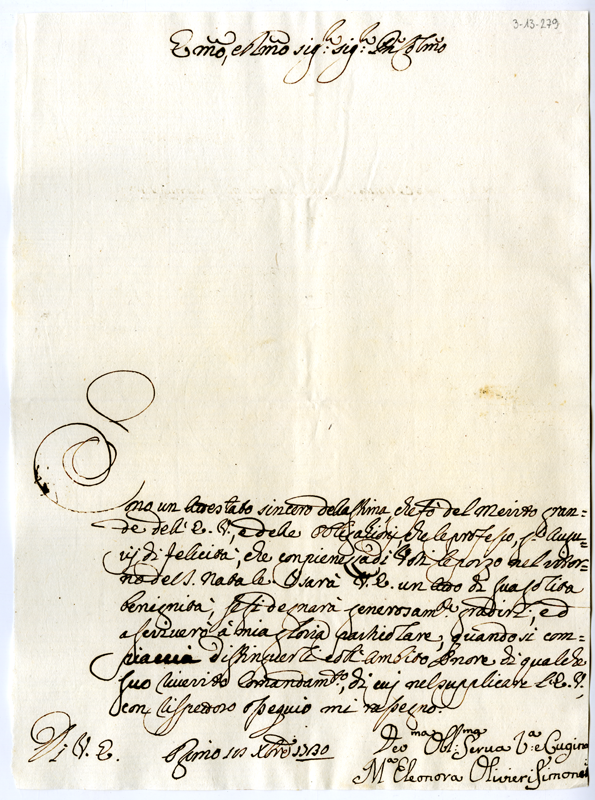 3-13-279
Emo, e Rmo sig.r sig.r Pne Colmo
Sono un attestato sincero della stima, che fò del merito gran=
de dell' E. V., e delle obligazioni, che le professo, gl'Augu=
rij di felicità, che con pienezza di Voti le porgo nel ritor=
no del S. Natale. Usarà V. E. un atto di sua solita
benignità, se si degnarà generosam.te gradirli, ed
ascriverò à mia gloria particolare, quando si com=
piaccia distinguerli coll' ambito onore di qualche
suo riverito comandam.to, di cui nel supplicare l'E. V.,
con rispettoso ossequio mi rassegno.
Di V. E. Osimo Xbre 1730
Devma Obl:ma Serva V.a e Cugina
M.a Eleonora Olivieri Simonetti